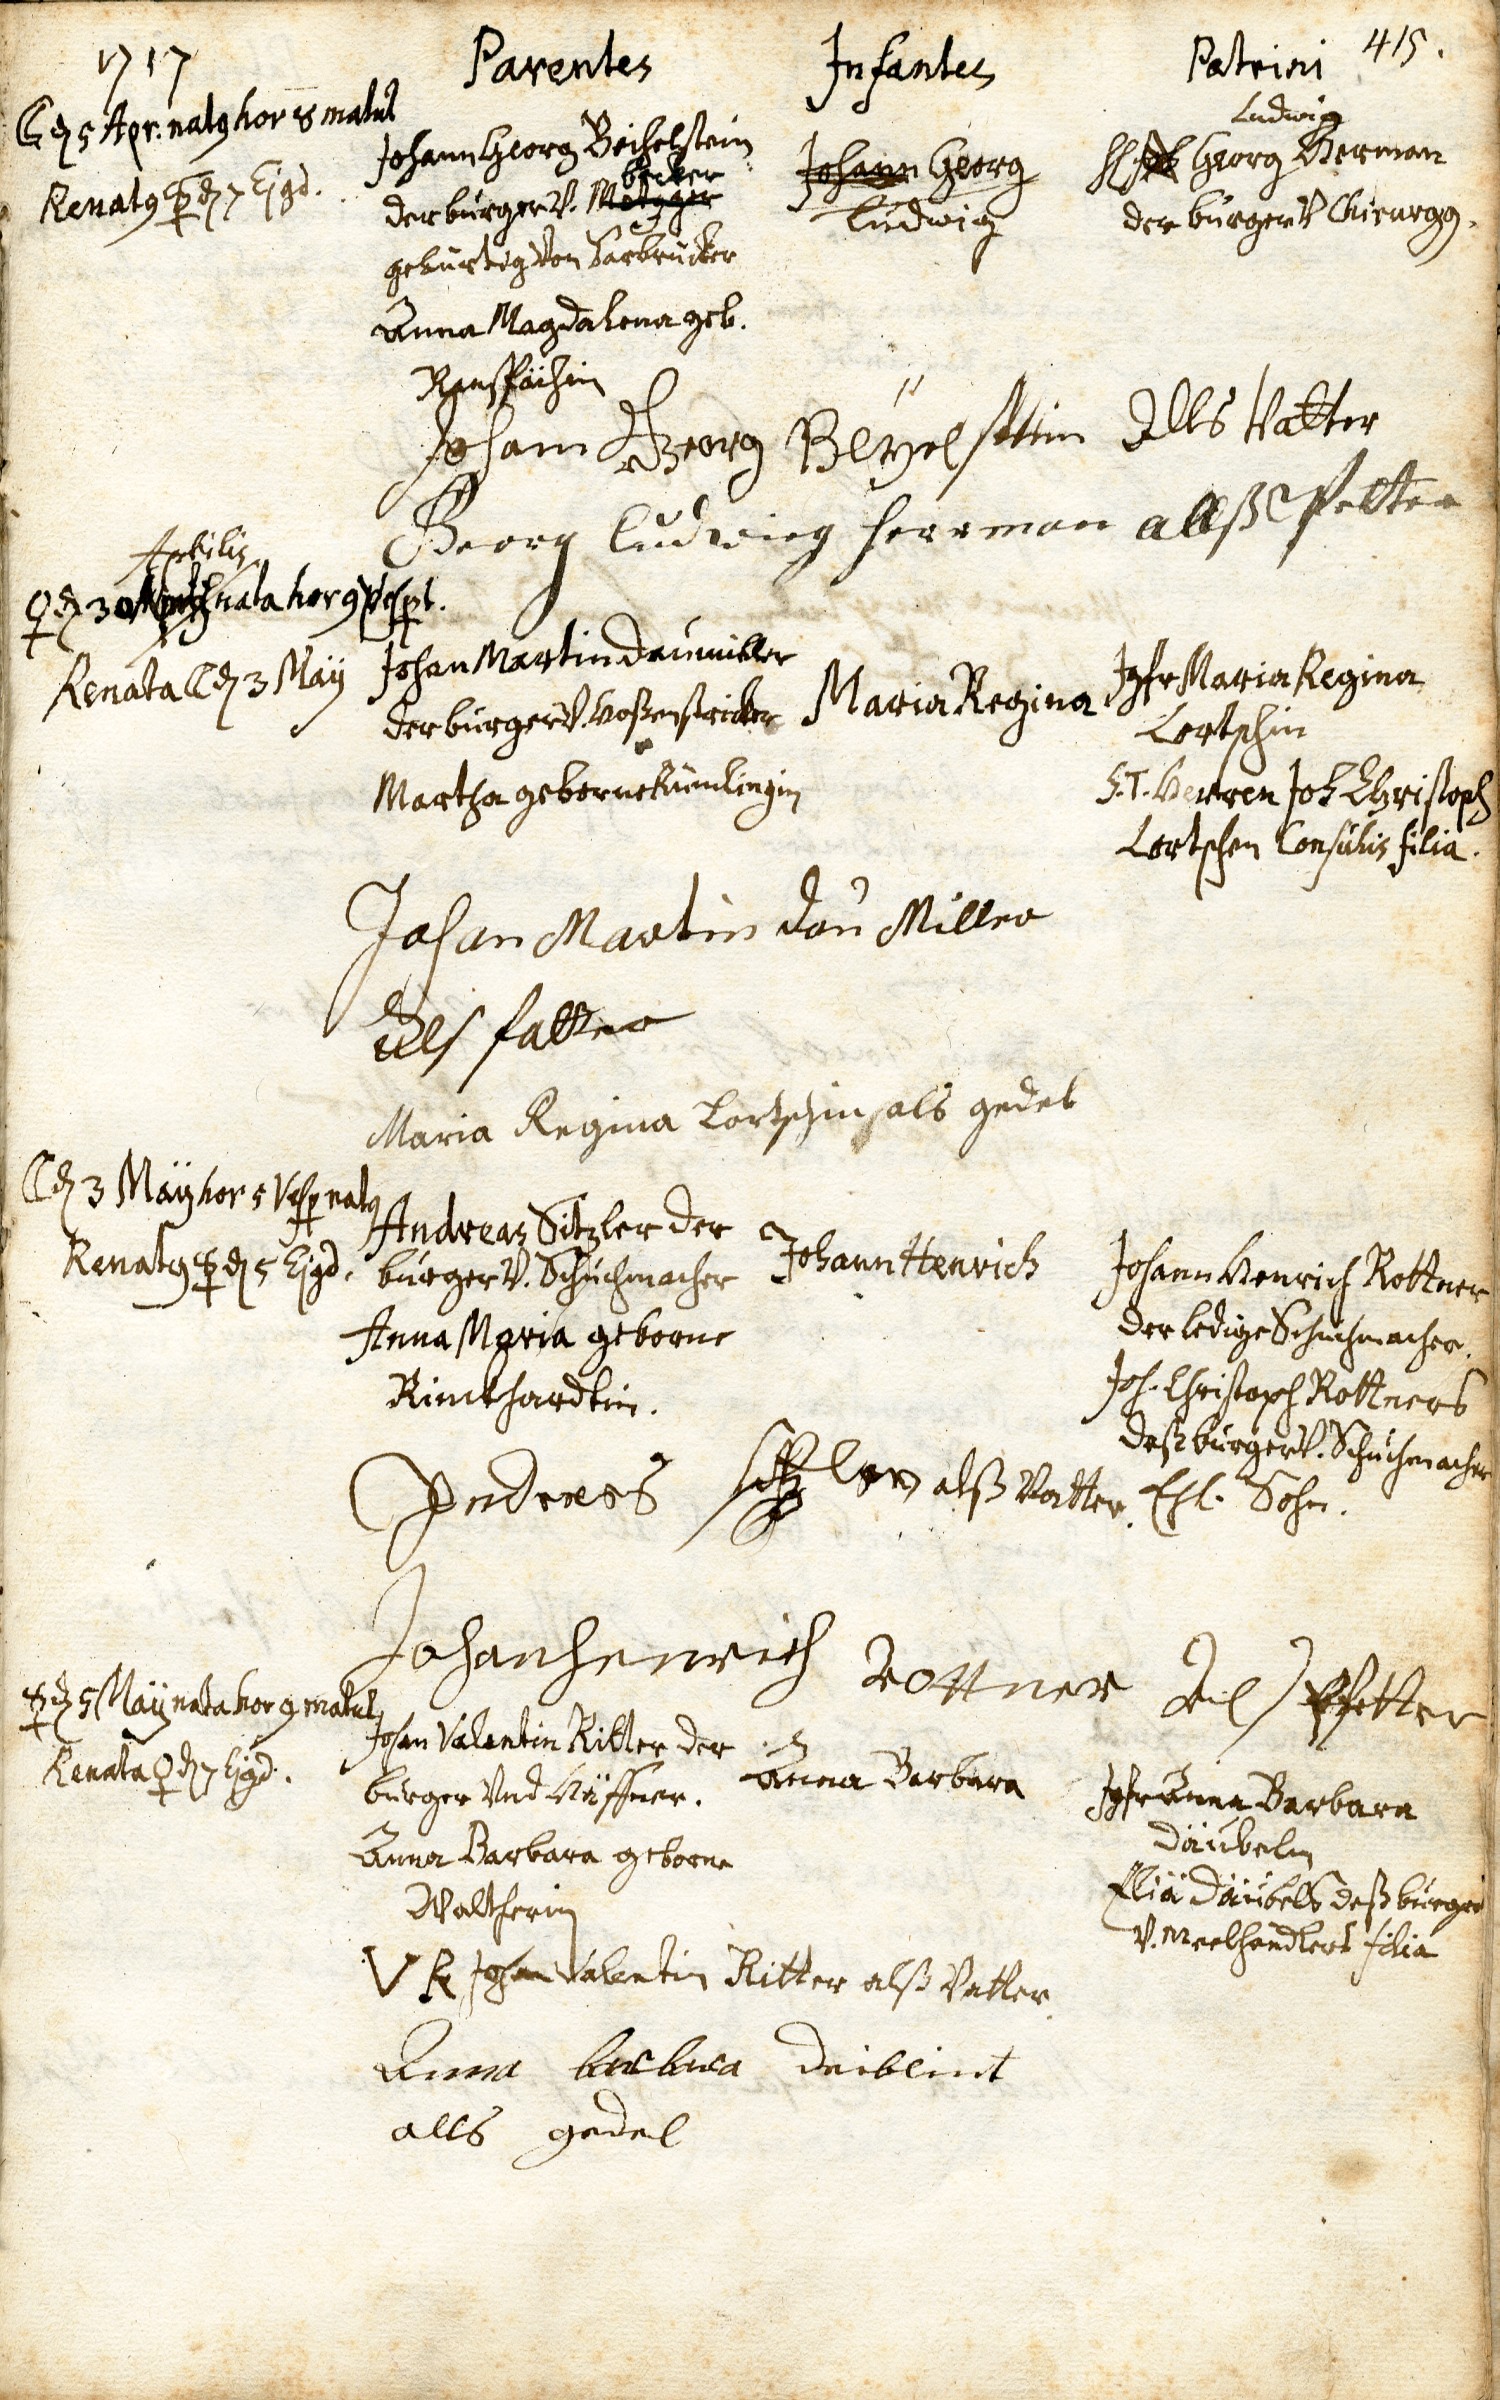 1717
Parentes
Infantes
Patrini
415.
☾ d 5 Apr. natg hor 8 matut
Renatg ☿ d 7 Ejgd.
Johann Georg Beihelstein
der burger V. Metzger
becker
gebürtig Von Sarbrücker
Anna Magdalena geb.
Ranspächin
Johann Georg
Ludwig
Ludwig
Georg Herman
der burger V Chirurgg.
Johann Georg Beÿelsttein Alls Vatter
Georg Ludwieg Herrman allß Pfetter
Aprilis
♀ d 30 nata hor 9 Vesp.
Renata ☾ d 3 Maÿ
Johan Martin Daumiller
der burger V. Hoßenstricker
Martha geborne Kümlingin
Maria Regina
Jgfr Maria Regina
Lortschin
S.T. Herren Joh Christoph
Lortschen Consulis filia.
Johan Martin dau Miller
Als fatter
Maria Regina Lortschin als gedel
☾ d 3 Maÿ hor 5 Vesp natg
Renatg ☿ d 5 Ejgd.
Andreas Sitzler der
burger V. Schuhmacher
Anna Maria geborne
Rinckhardtin.
Johann Henrich
Johann Henrich Rottner
der ledige Schuhmacher.
Joh. Christoph Rottners
deß burger V. Schuhmacher
Ehl. Sohn.
Andreas sitzler alß Vatter.
Johanhenrich Rottner Als Pfetter
☿ d 5 Maÿ nata hor 9 matut
Renata ♀ d 7 Ejgd.
Johan Valentin Ritter der
burger Vnd Häffner.
Anna Barbara geborne
Waltherin
Anna Barbara
Jgfr Anna Barbara
Däubelin
Eliä Däubels deß burger
V. Meelhändlers filia
V R Johan Valentin Ritter alß Vatter.
Anna barbara deiblint
alls gedel